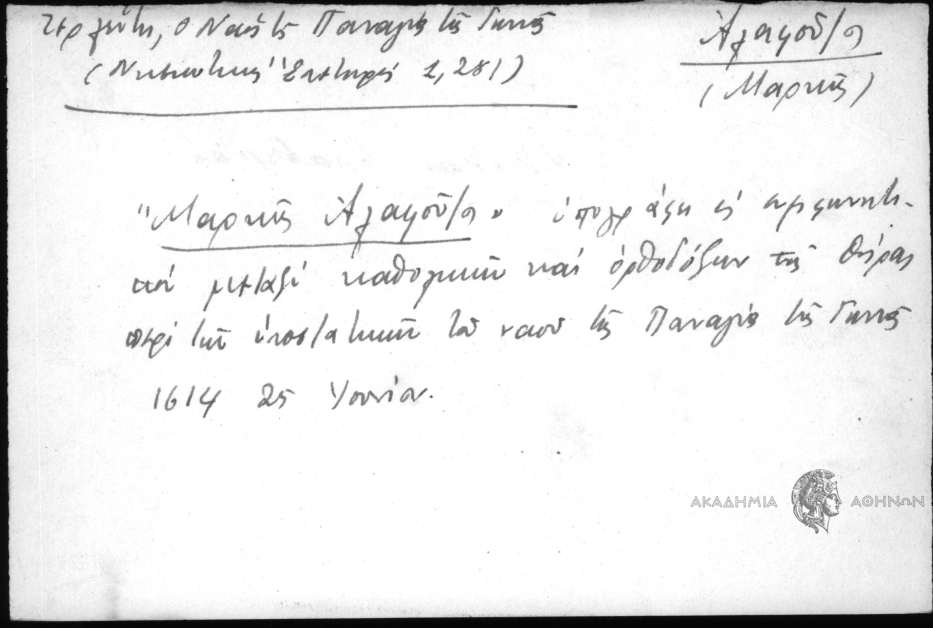 Ζερλέντη, ὁ Ναὸς τῆς Παναγίας τῆς Γωνιᾶς
(Νησιωτικὴ Ἐπετηρὶς 1, 281)
Ἀλαφοῦζος
(Μαρκῆς)
"Μαρκῆς Ἀλαφοῦζος" ὑπογράφει εἰς
μεταξὺ καθολικῶν καὶ ὀρθοδόξων τῆς Θήρας
περὶ τῶν ὑποστατικῶν τοῦ ναοῦ τῆς Παναγίας τῆς Γωνιᾶς
1614 25 Ἰουνίου.
ΑΚΑΔΗΜΙΑ ΑΘΗΝΩΝ